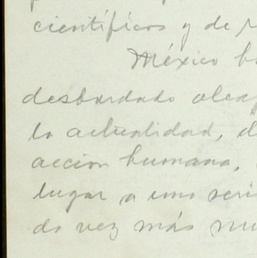 científicos y de
México
desbordado
la actualidad,
acción humana,
lugar a una seri
do vez más